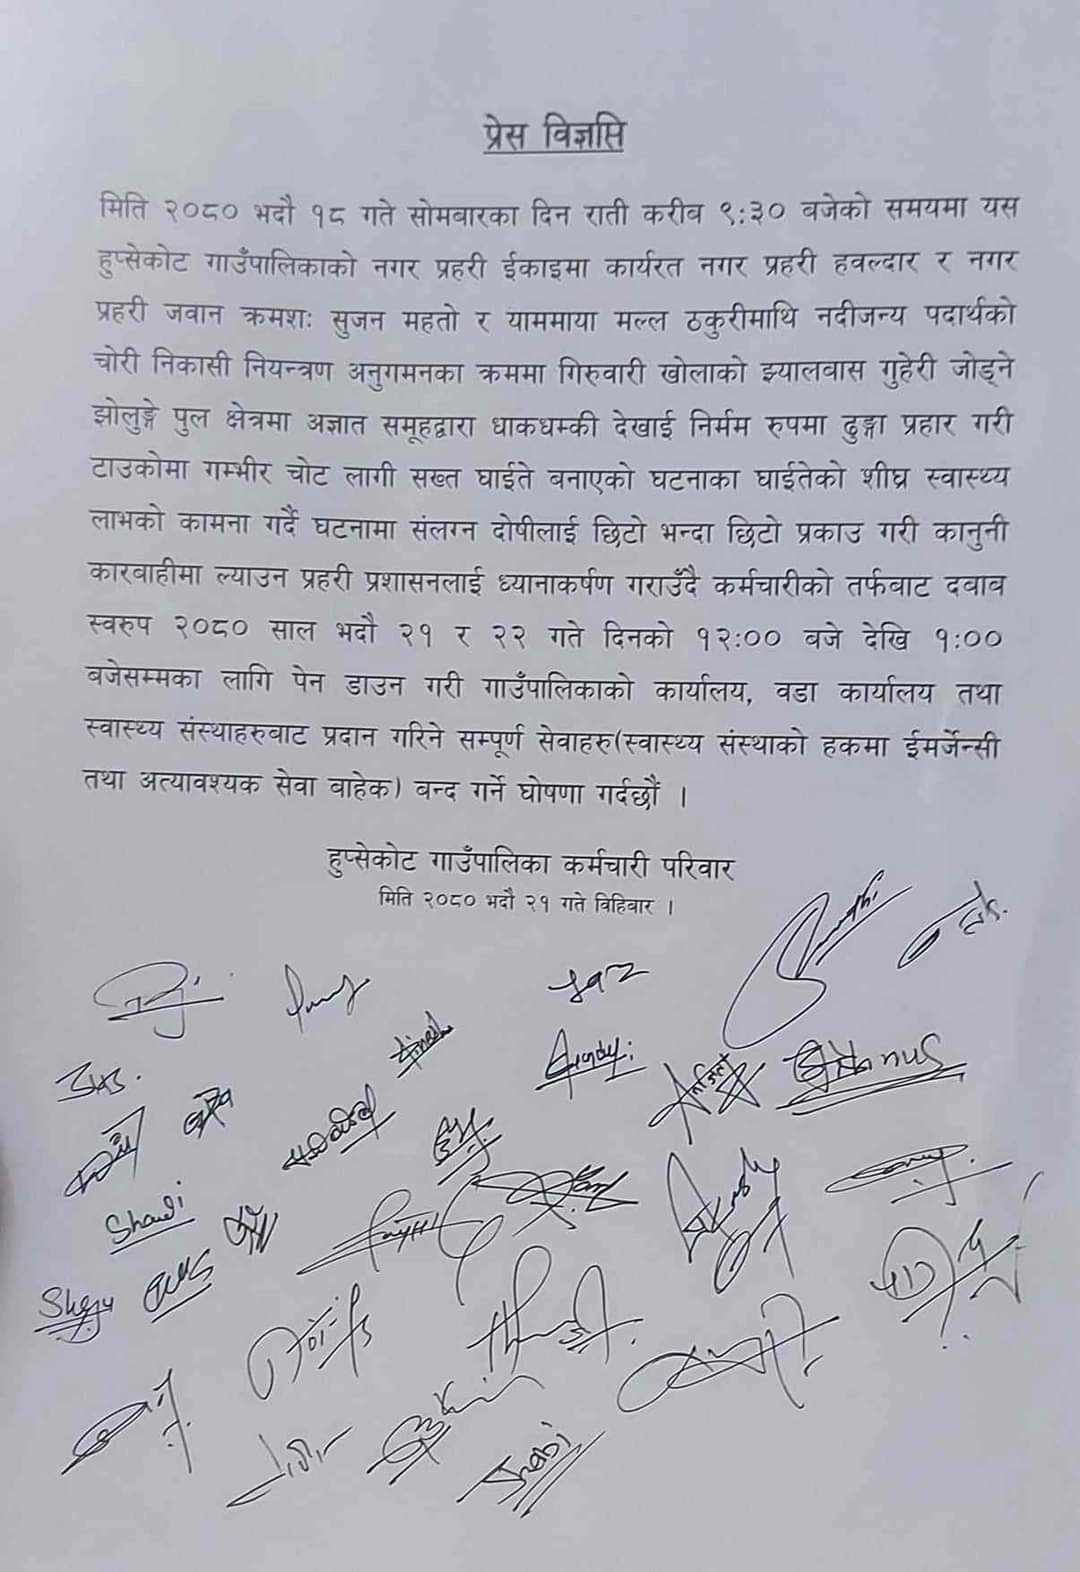 प्रेस विज्ञप्ति
मिति २०८० भदौ १८ गते सोमबारका दिन राती करीव ९:३० बजेको समयमा यस
हुप्सेकोट गाउँपालिकाको नगर प्रहरी ईकाइमा कार्यरत नगर प्रहरी हवल्दार र नगर
प्रहरी जवान क्रमशः सुजन महतो र याममाया मल्ल ठकुरीमाथि नदीजन्य पदार्थको
चोरी निकासी नियन्त्रण अनुगमनका क्रममा गिरुवारी खोलाको झ्यालवास गुहेरी जोड्ने
झोलुङ्गे पुल क्षेत्रमा अज्ञात समूहद्वारा धाकधम्की देखाई निर्मम रुपमा ढुङ्गा प्रहार गरी
टाउकोमा गम्भीर चोट लागी सख्त घाईते बनाएको घटनाका घाईतेको शीघ्र स्वास्थ्य
लाभको कामना गर्दै घटनामा संलग्न दोषीलाई छिटो भन्दा छिटो प्रकाउ गरी कानुनी
कारबाहीमा ल्याउन प्रहरी प्रशासनलाई ध्यानाकर्षण गराउँदै कर्मचारीको तर्फबाट दबाव
स्वरुप २०८० साल भदौ २१ र २२ गते दिनको १२:०० बजे देखि १:००
बजेसम्मका लागि पेन डाउन गरी गाउँपालिकाको कार्यालय, वडा कार्यालय तथा
स्वास्थ्य संस्थाहरुबाट प्रदान गरिने सम्पूर्ण सेवाहरु(स्वास्थ्य संस्थाको हकमा ईमर्जेन्सी
तथा अत्यावश्यक सेवा बाहेक) बन्द गर्ने घोषणा गर्दछौं ।
हुप्सेकोट गाउँपालिका कर्मचारी परिवार
मिति २०८० भदौ २१ गते विहिवार ।